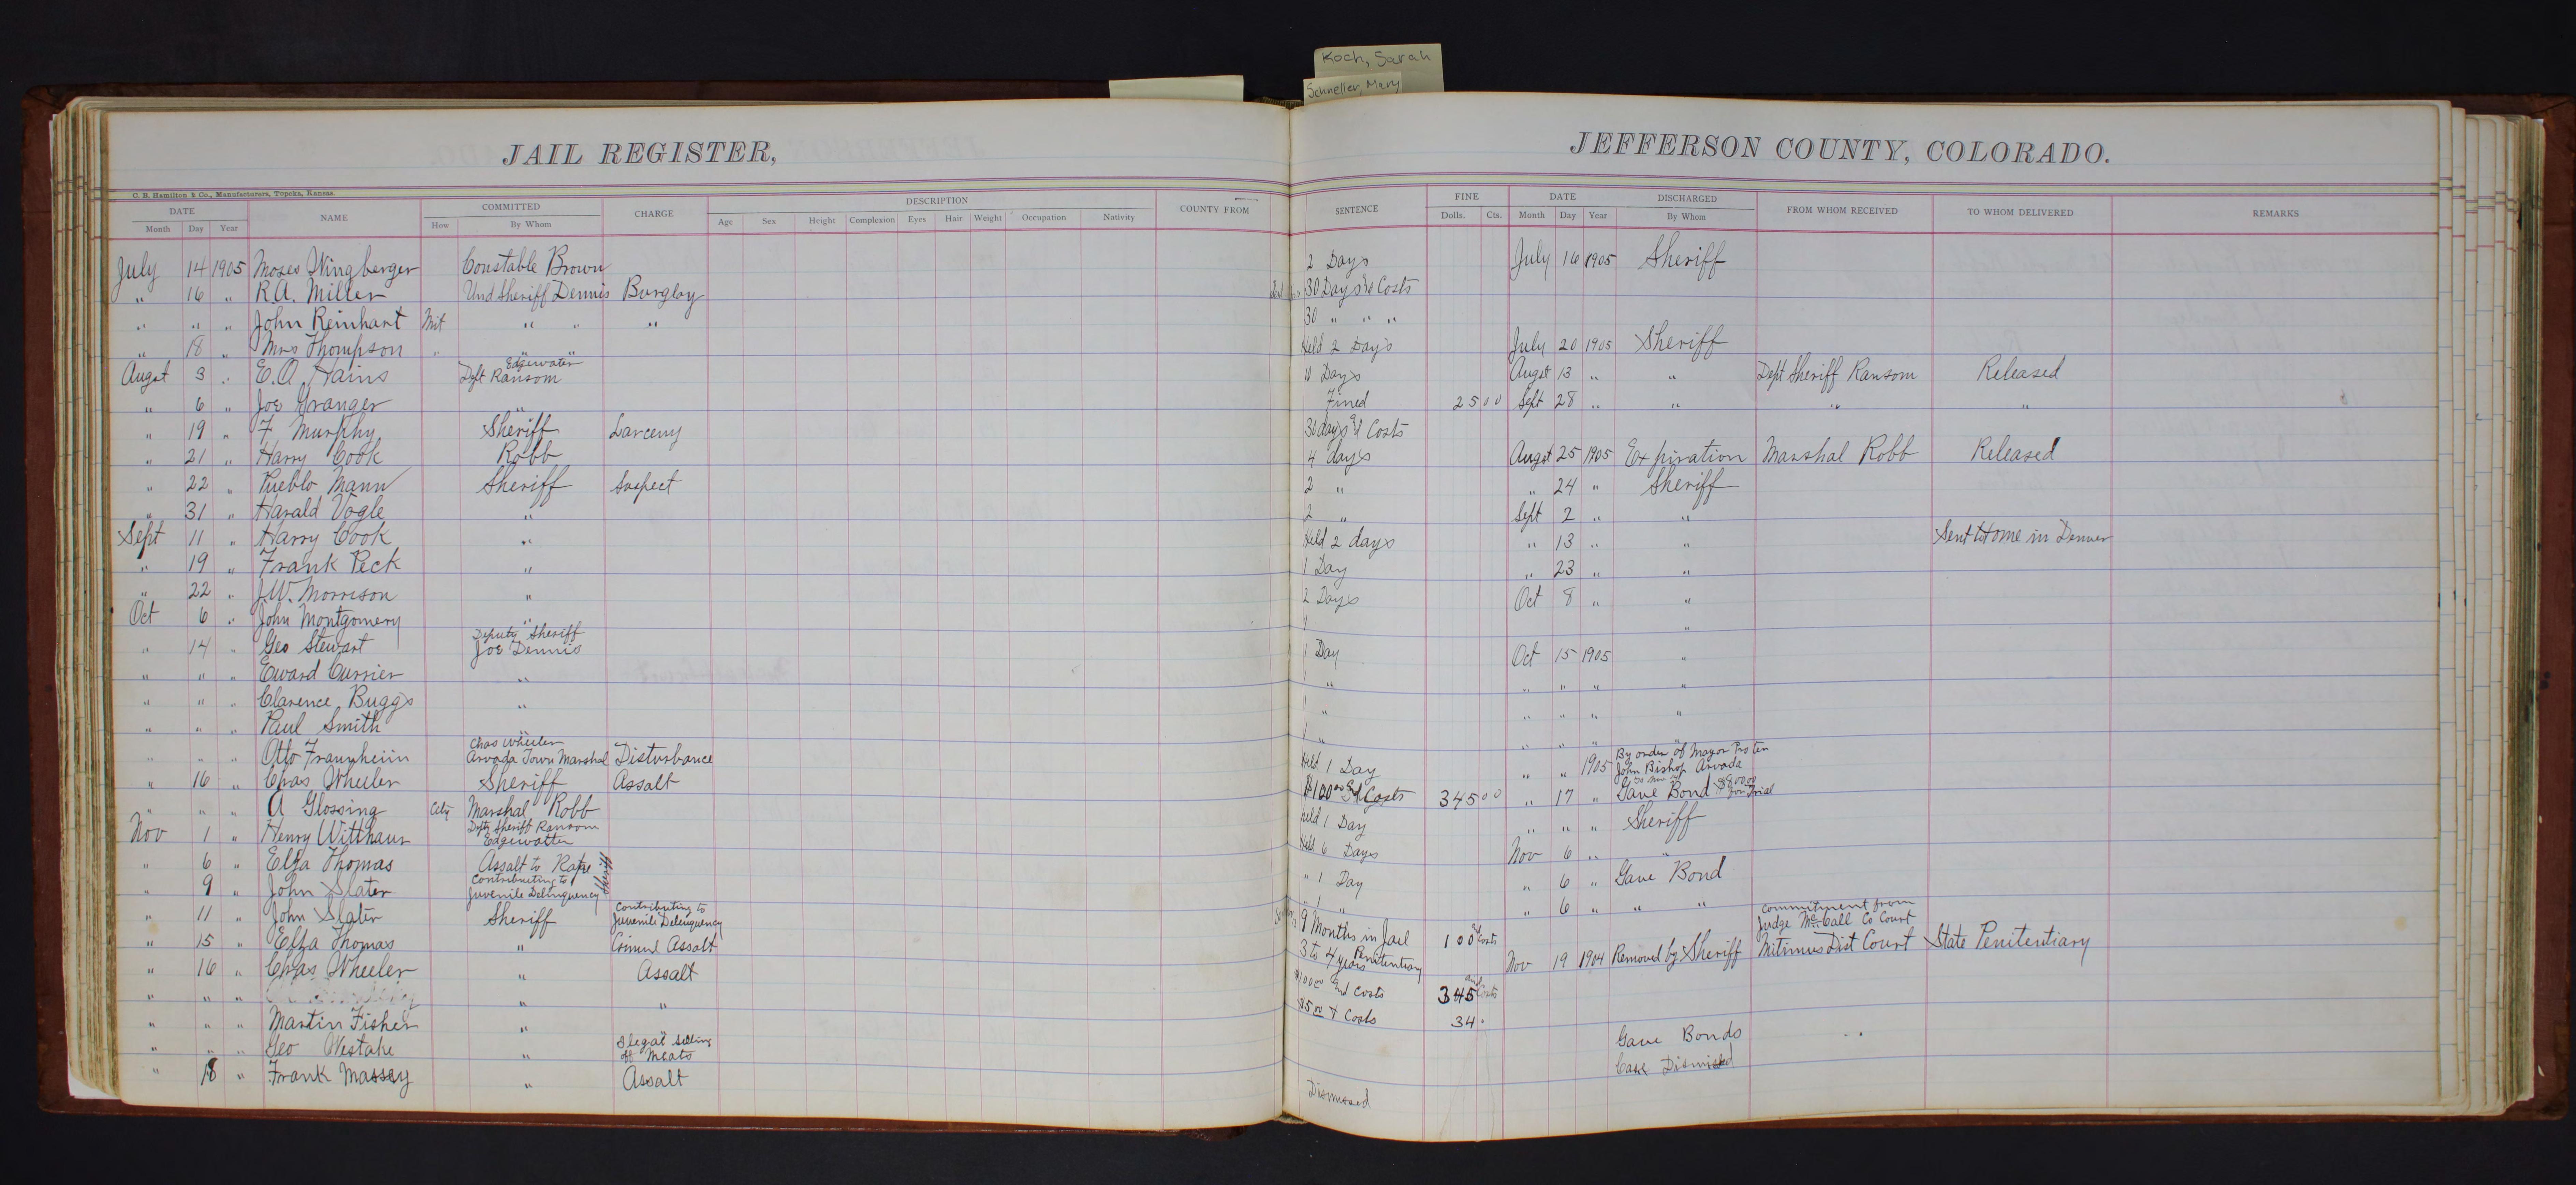 Koch, Sarah
Schneller, Mary
JAIL REGISTER,
JEFFERSON COUNTY, COLORADO.
C. B. Hamilton & Co., Manufacturers, Topeka, Kansas.
DATE NAME COMMITTED CHARGE DESCRIPTION COUNTY FROM SENTENCE FINE DATE DISCHARGED FROM WHOM RECEIVED TO WHOM DELIVERED REMARKS
Month Day Year How By Whom Age Sex Height Complexion Eyes Hair Weight Occupation Nativity Dolls. Cts. Month Day Year By Whom
July 14 1905 Moses Wingberger Constable Brown 2 Days July 16 1905 Sheriff
" 16 " R.A. Miller Und Sheriff Dennis Burglay 30 Days & Costs
" " " John Reinhart Mit " " " 30 " " "
" 18 " Mrs Thompson " " " Held 2 Days July 20 1905 Sheriff
Augst 3 " E.A. Hains Dept Ransom Edgewater 11 Days Augst 13 " " Dept Sheriff Ransom Released
" 6 " Joe Granger " Fined 25 00 Sept 28 " " " "
" 19 " F Murphy Sheriff Larceny 30 days & Costs
" 21 " Harry Cook Robb 4 days Augst 25 1905 Expiration Marshal Robb Released
" 22 " Pueblo Mann Sheriff Suspect 2 " " 24 " Sheriff
" 31 " Harald Vogle " 2 " Sept 2 " "
Sept 11 " Harry Cook " Held 2 days " 13 " " Sent to Home in Denver
" 19 " Frank Peck " 1 Day " 23 " "
" 22 " J.W. Morrison " 2 Days Oct 8 " "
Oct 6 " John Montgomery " 1 "
" 14 " Geo Stewart Deputy Sheriff Joe Dennis 1 Day Oct 15 1905 "
" " " Eward Currier " 1 " " " " "
" " " Clarence Buggs " 1 " " " " "
" " " Paul Smith " 1 " " " " "
" " " Otto Frannheim Chas Wheeler Arvada Town Marshal Disturbance Held 1 Day " " 1905 By order of Mayor Protem John Bishop Arvada
" 16 " Chas Wheeler Sheriff Assalt $100 00 & Costs 345 00 " 17 " Gave Bond for Trial
" " " A Glossing City Marshal Robb held 1 Day " " " Sheriff
Nov 1 " Henry Witthaus Depty Sheriff Ransom Edgewatter Held 6 Days Nov 6 " "
" 6 " Elza Thomas Assalt to Rape Sheriff " 1 Day " 6 " Gave Bond
" 9 " John Slater Contributing to Juvenile Delinquency " 1 " " 6 " " "
" 11 " John Slater Sheriff Contributing to Juvenile Delinquency 9 Months in Jail 100 & Costs Commitment from Judge McCall Co Court
" 15 " Elza Thomas " Criminl Assalt 3 to 4 years Penitentiary Nov 19 1904 Removed by Sheriff Mitimus Dist Court State Penitentiary
" 16 " Chas Wheeler " Assalt $100 00 and Costs 345 and Costs
" " " " " $5 00 & Costs 34.
" " " Martin Fisher " Gave Bonds
" " " Geo Westake " Ilegal Selling of Meats Case Dismissed
" 18 " Frank Massey " Assalt Dismissed